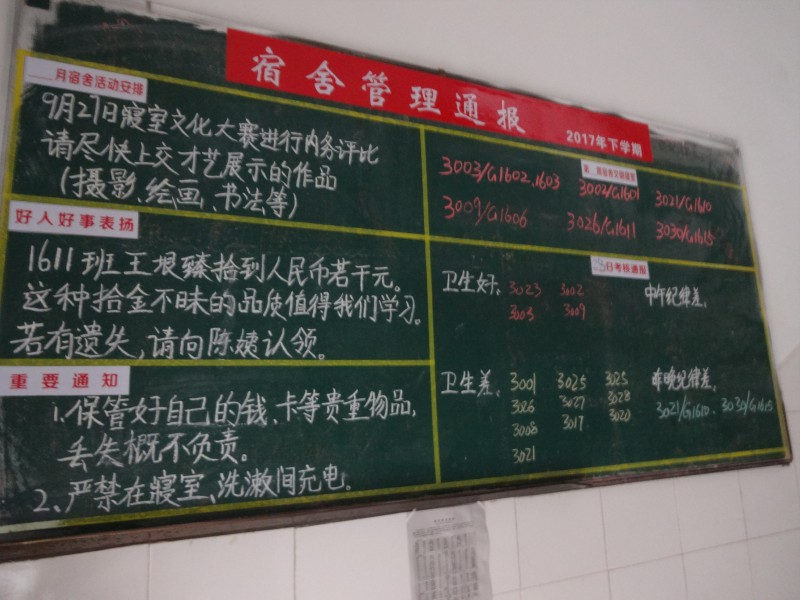 宿舍管理通报
2017年下学期
月宿舍活动安排
9月27日寝室文化大赛进行内务评比
请尽快上交才艺展示的作品
(摄影、绘画、书法等)
好人好事表扬
1611班王根臻拾到人民币若干元。
这种拾金不昧的品质值得我们学习。
若有遗失,请向陈姨认领。
重要通知
1、保管好自己的钱、卡等贵重物品,
丢失概不负责。
2、严禁在寝室、洗漱间充电。
3003/G1602、1603 3002/G1601 3021/G1610
3009/G1606 3026/G1611 3030/G1615
日考核通报
卫生好: 3023 3002
3003 3009
中午纪律差。
卫生差、 3001 3025 3025
3026 3027 3028
3008 3017、 3020
3021
昨晚纪律差。
3021/G1610、3030/G1615